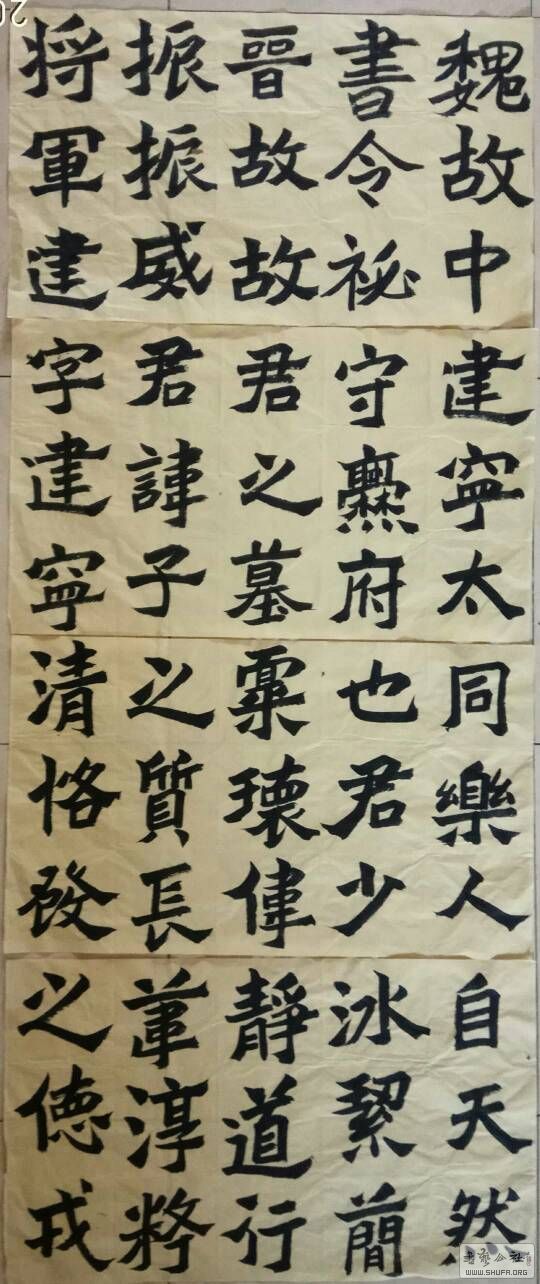 魏故中
書令祕
晉故故
振振威
將軍建
建寧太
守爨府
君之墓
君諱子
字建寧
同樂人
也君少
稟瓌偉
之質長
清恪發
自天然
冰絜簡
靜道行
葦淳粹
之德戎
书艺公社
WWW.SHUFA.ORG